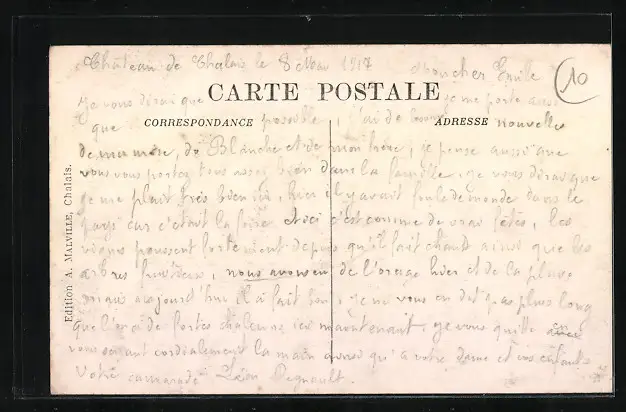 Château de Chalais le 8 Mai 1917
cher Emile
10
Je vous dirai que
CARTE POSTALE
je me porte aussi
CORRESPONDANCE
ADRESSE
que possible, j'ai de bonnes nouvelles
de ma mère, de Blanche et de mon frère, je pense aussi que
vous vous portez tous assez bien dans la famille, je vous dirai que
je me plait très bien ici, hier il y avait foule de monde dans le
pays car c'était la foire et ici c'est comme de vrai fêtes, les
vignes poussent fortement depuis qu'il fait chaud ainsi que les
arbres fruitiers, nous avons eu de l'orage hier et de la pluie
mais aujourd'hui il a fait bon, je ne vous en dit pas plus long
que l'on a de fortes chaleurs ici maintenant, je vous quitte en
vous serrant cordialement la main ainsi qu'a votre dame et vos enfants
Votre camarade Léon Regnault.
Edition A. MALVILLE, Chalais.